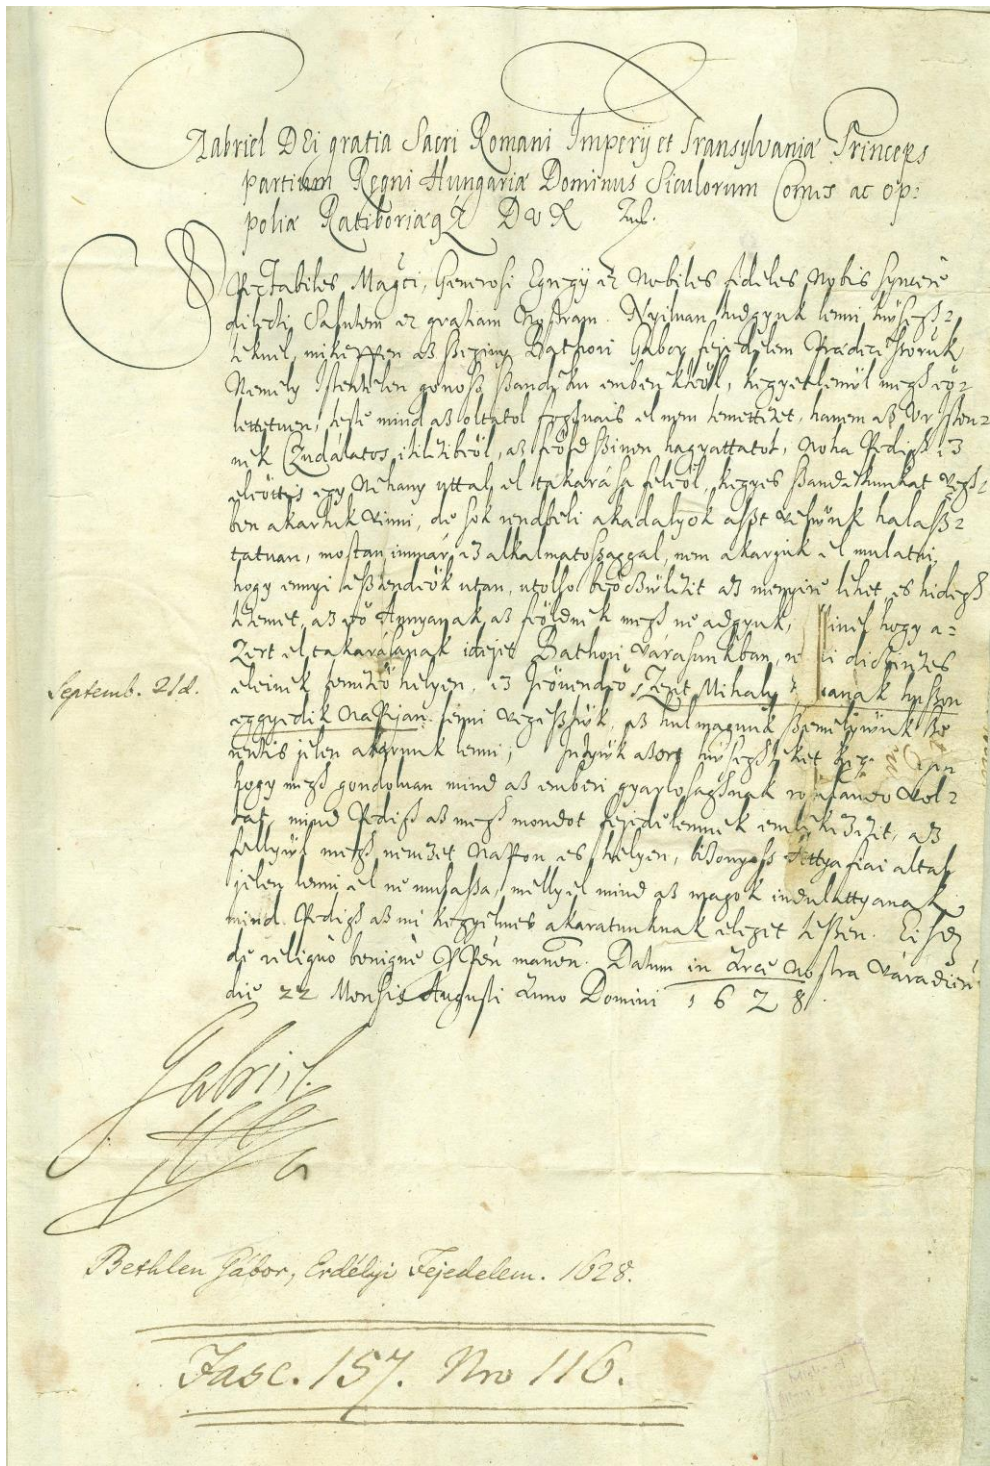 Gabriel DEi gratia Sacri Romani Imperÿ et Transylvaniæ Princeps
partium Regni Hungariæ Dominus Siculorum Comes ac op:
poliæ Ratiboriæqz DVX
SPectabiles, Magci, Generosi Egregÿ et Nobiles fideles Nobis syncere
dilecti Salutem et gratiam Nostram. Nyilvan tudgyuk lenni hűsegh
teknel, mikeppen az szegeny Bathori Gabor fejedelem
Nemely Istentelen gonosz szandeku emberektől, kegyetlenűl megh eő
lettetven, teste mind az oltatol fogvais el nem temettetet, hanem az Ur Isten
nek Czudálatos itiletiből, az főld szinen hagyattatot, Noha Pedigh ez
eleőttis egy Nehany uttal el takarása felől, kegyes szandekunkat vegh
ben akartuk vinni, de sok rendbeli akadalyok aszt velwnk halasz
tatvan, mostan immár ez alkalmatossaggal, nem akarjuk el mulatni,
hogy ennyi esztendeők utan, utolso tisztit az menyire lehet, es hidegh
tetemet, az eő Annyanak az főldnek megh ne adgyuk, hogy a=
Zert el takarásanak idejet Bathori Várasunkban,
eleinek temető helyen, ez Jeővendeő Szent Mihaly hanak huszon
eggyedik Napjan lenni vegeztűk, az hul magunk szemelyűnk sze
rentis jelen akarunk lenni;
hogy megh gondolvan mind az emberi gyarlosaghnak Vol
tat, mind Pedigh az megh mondot fejedelemnek emlekezetit, az
fellywl megh nevezet Napon es helyen, bizonyos Attyafiai altal
jelen lenni el ne mulassa, mellyel mind az magok indulattyanak
mind Pedigh az mi kegyelmes akaratunknak eleget teszen.
de reliquo benigne manen. Datum in Arce Nostra Váradien
die 22 Mensis Augusti Anno Domini 1628.
Septemb. 21d.
Gabriel
Bethlen Gábor, Erdélyi Fejedelem. 1628.
Fasc. 157. Nro 116.